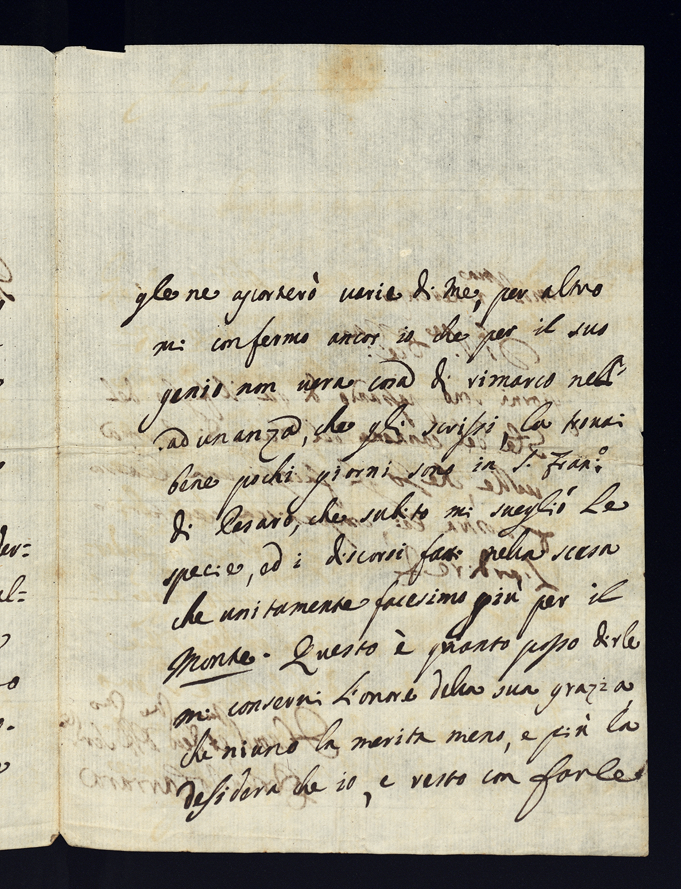 gle ne aporterò varie di me, per altro
mi confermo ancor io che per il suo
genio non vera cosa di rimarco nell'
adunanza, che gli scrissi, la trovai
bene pochi giorni sono in S. Fran.º
di Pesaro, che subito mi svegliò le
specie, ed i discorsi fatti nella scesa
che unitamente facesimo giù per il
Monte. Questo è quanto posso dirle
mi conservi l'onore della sua grazia
che niuno la merita meno, e più la
desidera che io, e resto con farle